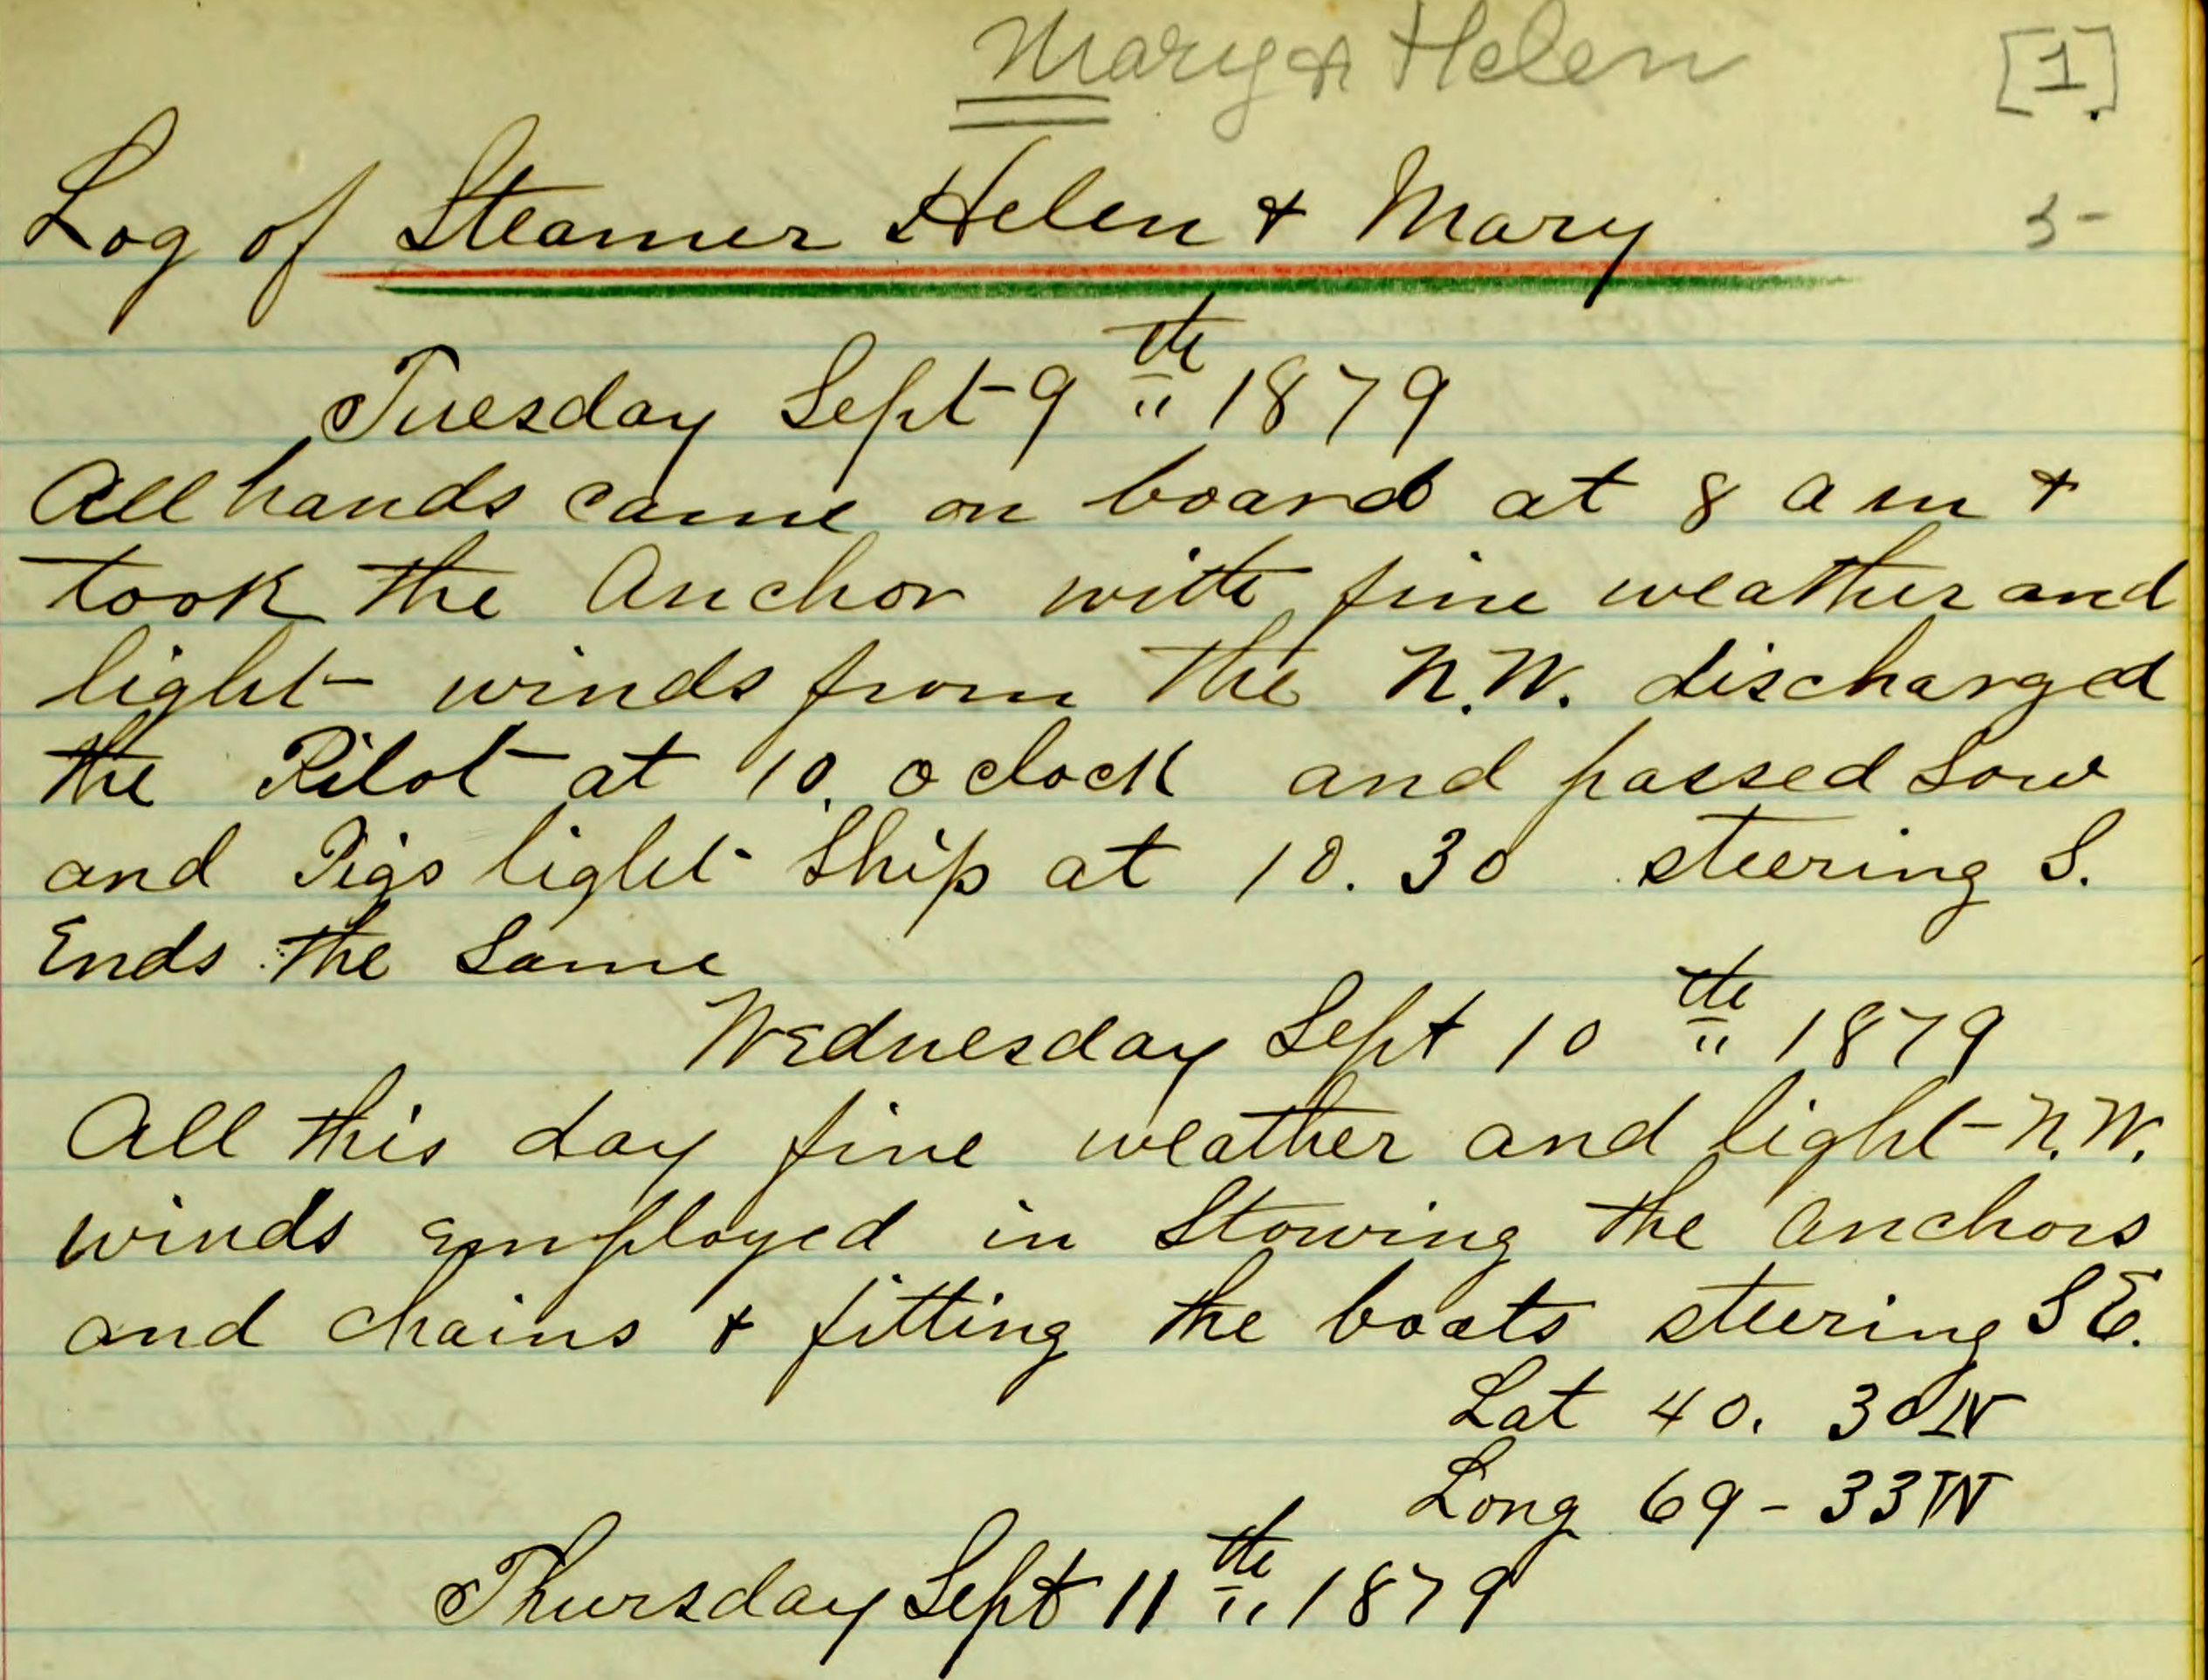 Mary & Helen
[1]
Log of Steamer Helen & Mary
3-
Tuesday Sept 9th 1879
All hands came on board at 8 am &
took the Anchor with fine weather and
light winds from the N.W. discharged
the Pilot at 10. oclock and passed Sow
and Pigs light Ship at 10.30 steering S.
Ends the Same
Wednesday Sept 10th 1879
All this day fine weather and light N.W.
winds employed in Stowing the Anchors
and chains & fitting the boats steering SE.
Lat 40. 30N
Long 69-33W
Thursday Sept 11th 1879